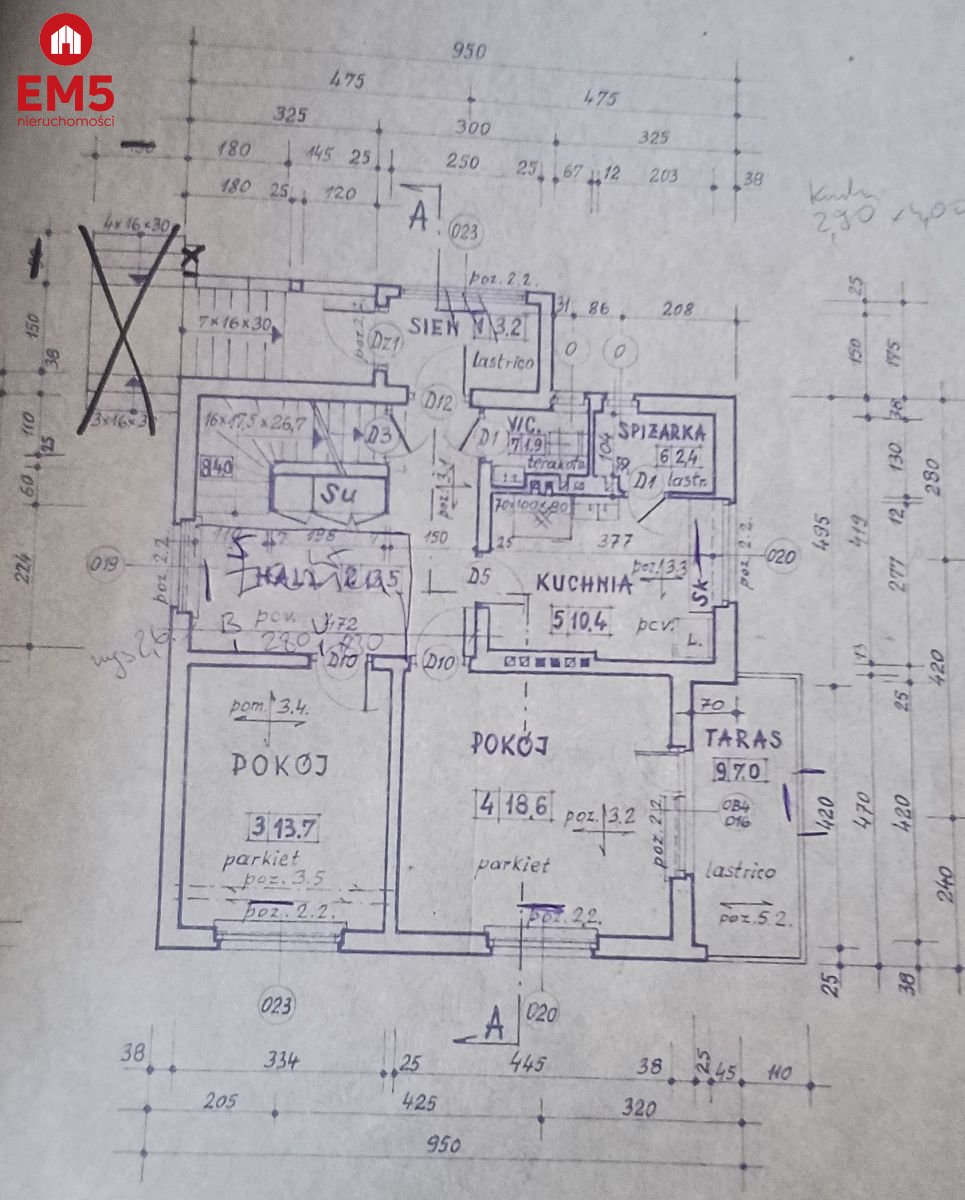 EM5
nieruchomości
950
475
475
325
300
325
180
145
25
250
25
67
12
203
38
180
25
120
A
023
4×16×30
poz. 2.2.
31
86
208
25
150
175
150
38
7×16×30
SIEŃ 1 3.2
lastrico
Dz1
0
0
D12
3×16×3
110
25
60
224
16×17,5×26,7
D3
8 4.0
Su
D1
W.C.
7 1,9
terakota
104
SPIŻARKA
6 2.4
lastr.
D1
poz. 3.1
38
130
280
12
495
419
277
150
25
377
019
poz. 2.2
HALL 2 13,5
pcv.
472
D5
KUCHNIA
poz. 3.3
5 10.4
pcv.
L.
Sk
poz. 2.2.
020
280
D10
D10
25
420
pom. 3.4.
POKÓJ
3 13.7
parkiet
poz. 3.5
poz. 2.2.
POKÓJ
4 18,6
poz. 3.2
parkiet
poz. 2.2.
poz. 2.2
70
TARAS
9 7.0
OB4
D16
lastrico
poz. 5.2.
420
470
420
240
25
38
023
A
020
38
334
25
445
38
25
45
110
205
425
320
950